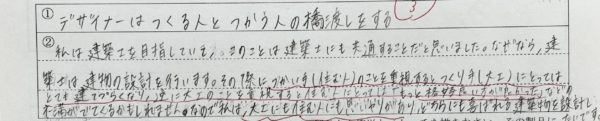 ①
デザイナーはつくる人とつかう人の橋渡しをする
3
②
私は建築士を目指しています。このことは建築士にも共通することだと思いました。なぜなら、建
築士は建物の設計を行います。その際につかい手(住む人)のことを重視するとつくり手(大工)にとっては
とても建てづらくなり、逆に大工のことを重視すると住む人にとっては「もっと格好良い方が良かった」などの
不満がでてくるかもしれません。なので私は、大工にも住む人にも思いやりがあり、どちらにも喜ばれる建築物を設計し